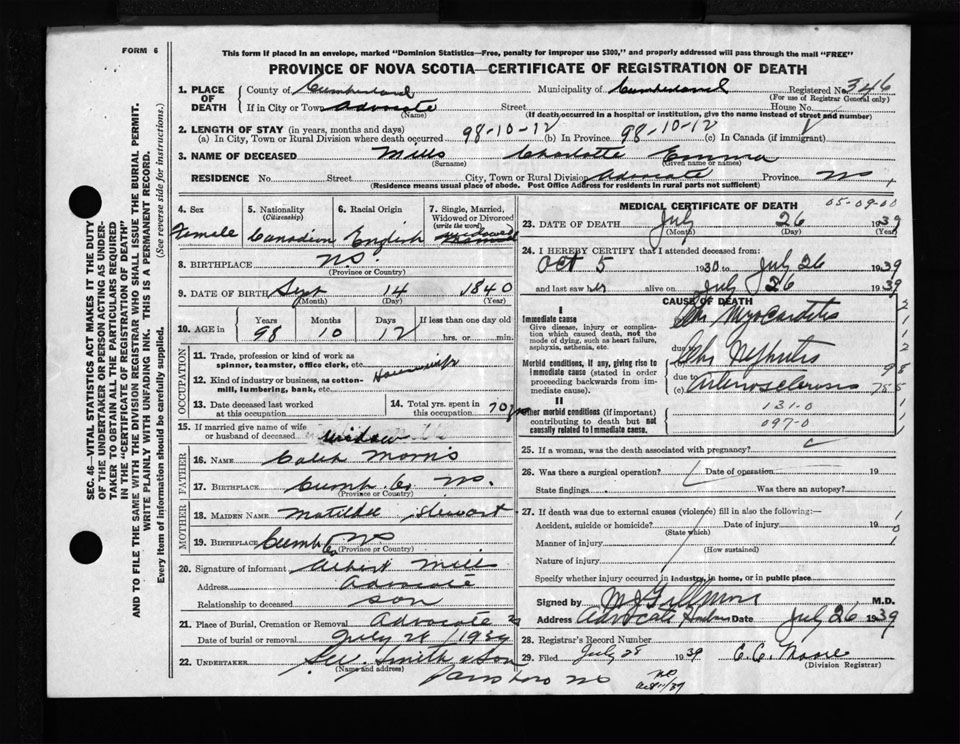 FORM 6
This form if placed in an envelope, marked "Dominion Statistics—Free, penalty for improper use $300," and properly addressed will pass through the mail "FREE"
PROVINCE OF NOVA SCOTIA—CERTIFICATE OF REGISTRATION OF DEATH
1. PLACE OF DEATH County of Cumberland Municipality of Cumberland Registered No. 346
(For use of Registrar General only)
If in City or Town Advocate Street House No.
(Name) (If death occurred in a hospital or institution, give the name instead of street and number)
2. LENGTH OF STAY (in years, months and days)
(a) In City, Town or Rural Division where death occurred 98-10-12 (b) In Province 98-10-12 (c) In Canada (if immigrant)
3. NAME OF DECEASED Mills Charlotte Emma
(Surname) (Given name or names)
RESIDENCE No. Street City, Town or Rural Division Advocate Province NS
(Residence means usual place of abode. Post Office Address for residents in rural parts not sufficient)
4. Sex Female
5. Nationality (Citizenship) Canadian
6. Racial Origin English
7. Single, Married, Widowed or Divorced (write the word) widowed
8. BIRTHPLACE N.S.
(Province or Country)
9. DATE OF BIRTH Sept 14 1840
(Month) (Day) (Year)
10. AGE in Years 98 Months 10 Days 12 If less than one day old hrs. or min.
OCCUPATION
11. Trade, profession or kind of work as spinner, teamster, office clerk, etc. Housewife
12. Kind of industry or business, as cotton-mill, lumbering, bank, etc.
13. Date deceased last worked at this occupation
14. Total yrs. spent in this occupation 70 yrs
15. If married give name of wife or husband of deceased widow
FATHER
16. NAME Caleb Morris
17. BIRTHPLACE Cumb. Co NS.
(Province or Country)
MOTHER
18. MAIDEN NAME Matilda Stewart
19. BIRTHPLACE Cumb Co NS
(Province or Country)
20. Signature of informant Albert Mills
Address Advocate
Relationship to deceased son
21. Place of Burial, Cremation or Removal Advocate
Date of burial or removal July 28 1939
22. UNDERTAKER Smith & Son
(Name and address)
Parrsboro NS
MEDICAL CERTIFICATE OF DEATH 05-09-00
23. DATE OF DEATH July 26 1939
(Month) (Day) (Year)
24. I HEREBY CERTIFY that I attended deceased from:
Oct 5 1930 to July 26 1939
and last saw her alive on July 26 1939
CAUSE OF DEATH
I
Immediate cause
Give disease, injury or complication which caused death, not the mode of dying, such as heart failure, asphyxia, asthenia, etc.
Chr Myocarditis
Morbid conditions, if any, giving rise to immediate cause (stated in order proceeding backwards from immediate cause).
due to (b) Chr Nephritis
due to (c) Arteriosclerosis
II
Other morbid conditions (if important) contributing to death but not causally related to immediate cause.
131-0
097-0
25. If a woman, was the death associated with pregnancy?
26. Was there a surgical operation? Date of operation 19
State findings Was there an autopsy?
27. If death was due to external causes (violence) fill in also the following:—
Accident, suicide or homicide? Date of injury 19
(State which)
Manner of injury
(How sustained)
Nature of injury
Specify whether injury occurred in industry, in home, or in public place
Signed by M.D.
Address Advocate Harbour Date July 26 1939
28. Registrar's Record Number
29. Filed July 28 1939 C. C. Moore
(Division Registrar)
SEC. 46—VITAL STATISTICS ACT MAKES IT THE DUTY
OF THE UNDERTAKER OR PERSON ACTING AS UNDERTAKER TO OBTAIN ALL THE PARTICULARS REQUIRED
IN THE "CERTIFICATE OF REGISTRATION OF DEATH"
AND TO FILE THE SAME WITH THE DIVISION REGISTRAR WHO SHALL ISSUE THE BURIAL PERMIT.
WRITE PLAINLY WITH UNFADING INK. THIS IS A PERMANENT RECORD.
Every item of information should be carefully supplied. (See reverse side for instructions.)